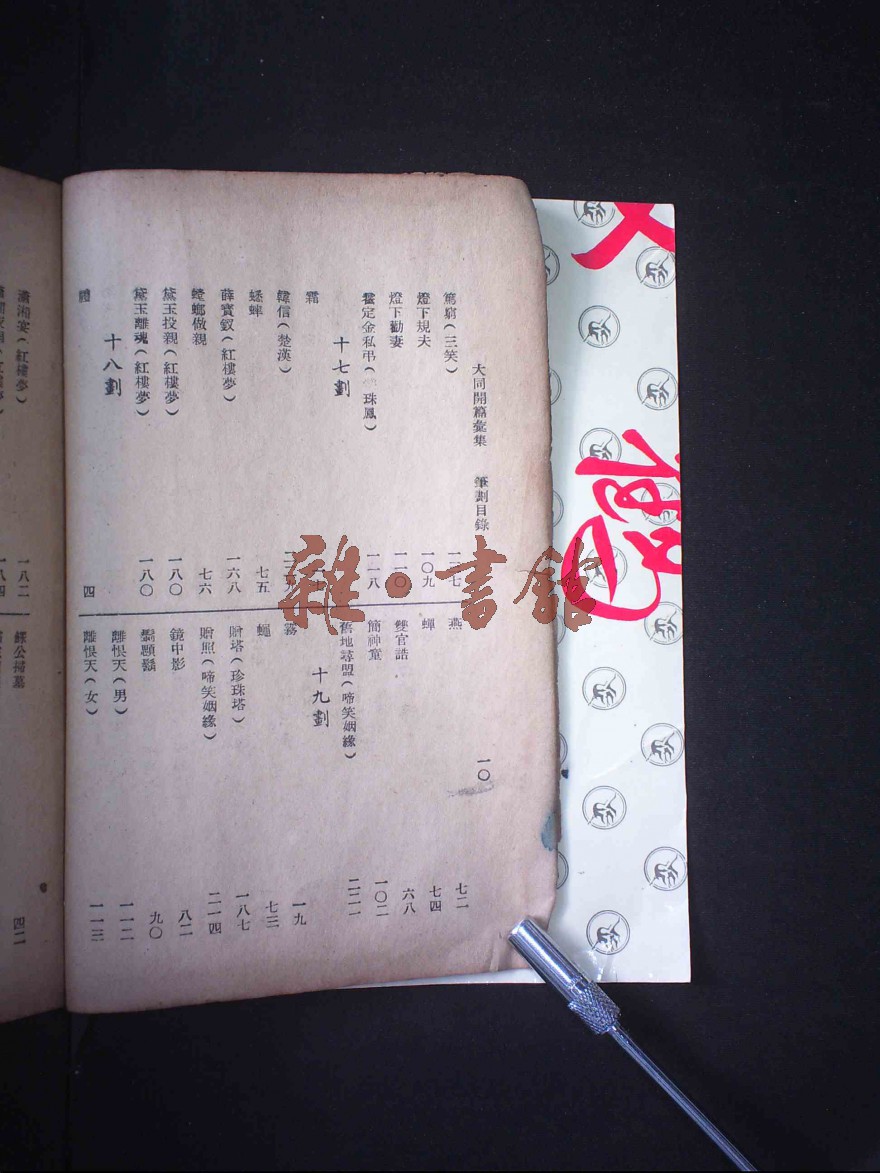 大同開篇彙集　筆劃目錄　一〇
篤窮(三笑)
燈下規夫　一〇九
燈下勸妻　一一〇
雲定金私弔(珠鳳)　一一八
十七劃
霜
韓信(楚漢)
蟋蟀　七五
薛寶釵(紅樓夢)　一六八
螳螂做親　七六
黛玉投親(紅樓夢)　一八〇
黛玉離魂(紅樓夢)　一八〇
十八劃
四
燕　七二
蟬　七四
雙官誥　六八
簡神童　一〇二
舊地尋盟(啼笑姻緣)　二二一
十九劃
霧　一九
蠅　七三
贈塔(珍珠塔)　一八七
贈照(啼笑姻緣)　二一四
鏡中影　八二
九〇
離恨天(男)　一一二
離恨天(女)　一一三
瀟湘宴(紅樓夢)　一八二
一八四
掃墓　四二
雜·書館